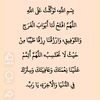 بِسْمِ اللهِ، تَوَكَّلْتُ عَلَى اللهِ
اللَّهُمَّ افْتَحْ لَنَا أَبْوَابَ الْفَرَجِ
وَالتَّوْفِيقِ، وَارْزُقْنَا رِزْقًا طَيِّبًا مِنْ
حَيْثُ لَا نَحْتَسِبُ، اللَّهُمَّ أَتِمَّ
عَلَيْنَا نِعْمَتَكَ وَعَافِيَتَكَ وَسِتْرَكَ
فِي الدُّنْيَا وَالْآخِرَةِ يَا رَبّ